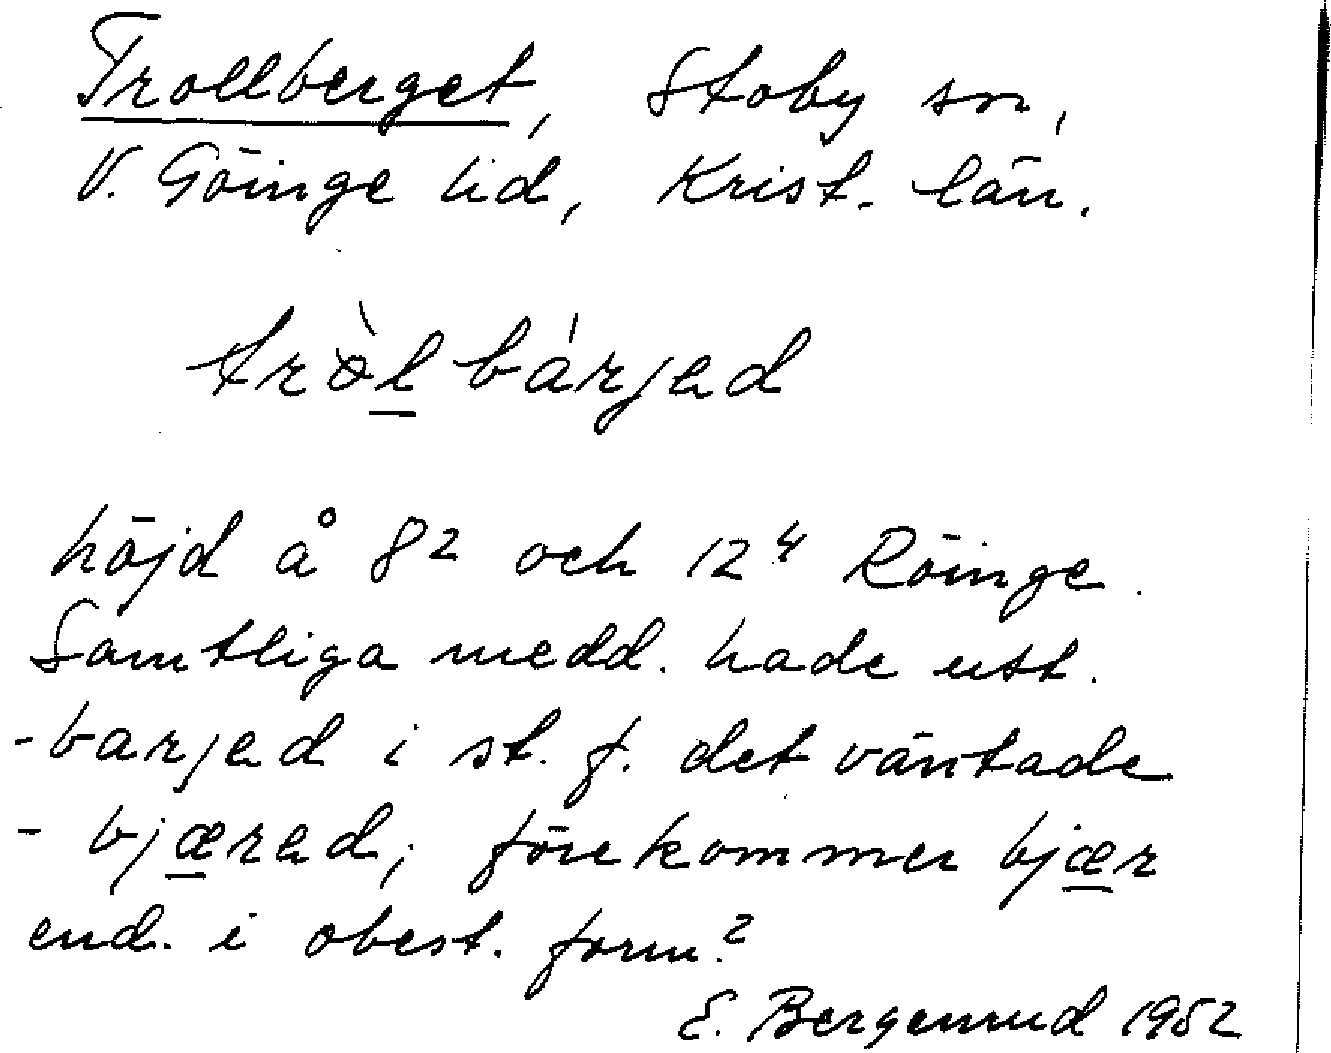 Trollberget, Stoby sn,
V. Göinge hd, Krist. län.
tròl bárjad
höjd å 8² och 12⁴ Röinge.
Samtliga medd. hade utt.
-barjad i st. f. det väntade
- bjærad; förekommer bjær
end. i obest. form?
E. Bergenrud 1952